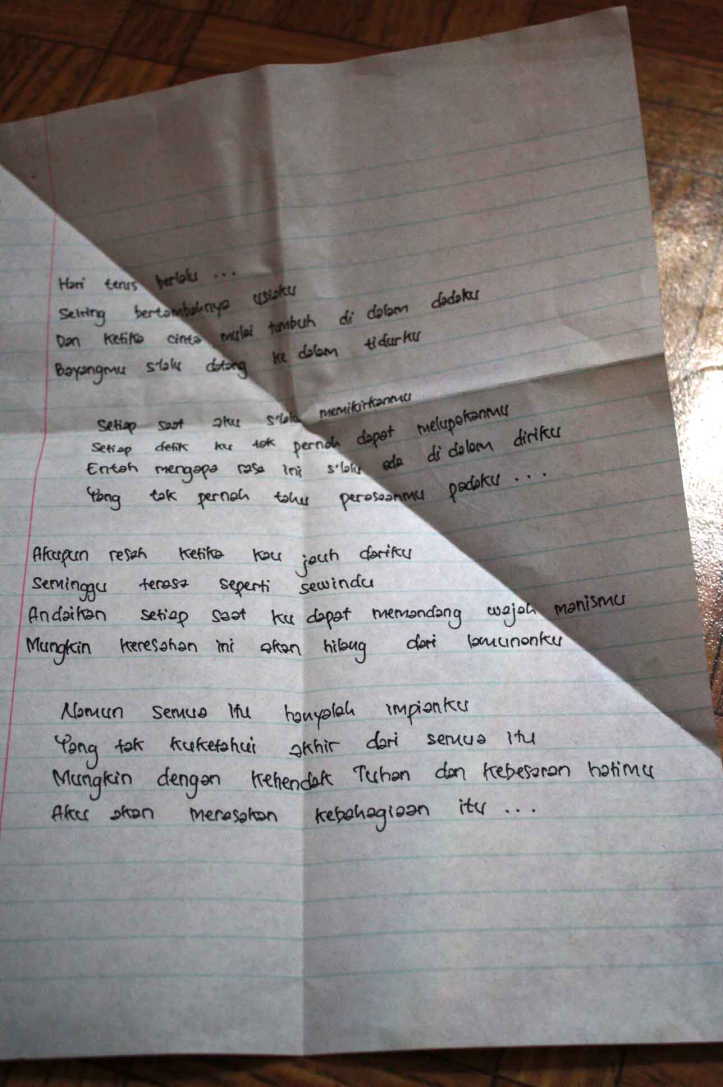 Hari terus berlalu ...
Seiring bertambahnya usiaku
Dan ketika cinta mulai tumbuh di dalam dadaku
Bayangmu s'lalu datang ke dalam tidurku
Setiap saat aku s'lalu memikirkanmu
Setiap detik ku tak pernah dapat melupakanmu
Entah mengapa rasa ini s'lalu ada di dalam diriku
Yang tak pernah tahu perasaanmu padaku ...
Akupun resah ketika kau jauh dariku
Seminggu terasa seperti sewindu
Andaikan setiap saat ku dapat memandang wajah manismu
Mungkin keresahan ini akan hilang dari lamunanku
Namun semua itu hanyalah impianku
Yang tak kuketahui akhir dari semua itu
Mungkin dengan kehendak Tuhan dan kebesaran hatimu
Aku akan merasakan kebahagiaan itu ...